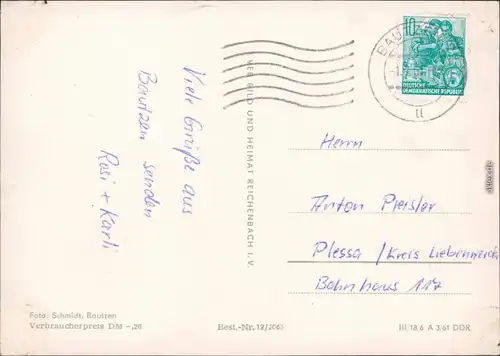 Viele Grüße aus
Bautzen senden
Rosi + Karli
VEB BILD UND HEIMAT REICHENBACH I. V.
10
DEUTSCHE
DEMOKRATISCHE REPUBLIK
BAUTZEN
Herrn
Anton Preisler
Plessa /Kreis Liebenwerda
Bahnhaus 117
Foto: Schmidt, Bautzen
Verbraucherpreis DM -,20
Best.-Nr. 12/
III/18/6 A 3/61 DDR